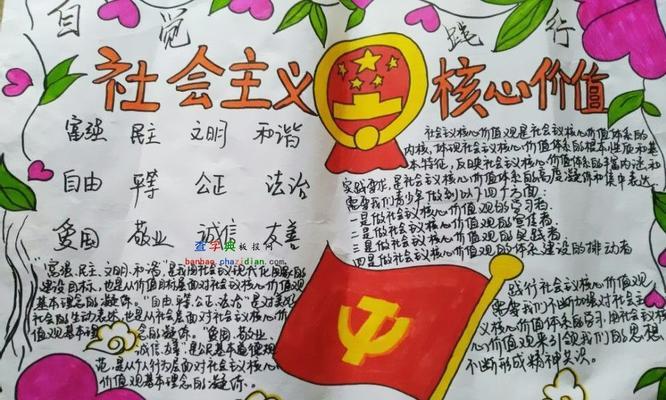 自觉 践行
社会主义 核心价值
富强 民主 文明 和谐
自由 平等 公正 法治
爱国 敬业 诚信 友善
查字典板报网
banbao.chazidian.com
"富强、民主、文明、和谐"是我国社会主义现代化国家的
建设目标,也是从价值目标层面对社会主义核心价值观
基本理念的凝练。"自由、平等、公正、法治"是对美好
社会的生动表述,也是从社会层面对社会主义核心价
值观基本理念的凝练。"爱国、敬业、
诚信、友善"是公民基本道德规
范,是从个人行为层面对社会主义核心
价值观基本理念的凝练。
社会主义核心价值观是社会主义核心价值体系的
内核,体现社会主义核心价值体系的根本性质和基
本特征,反映社会主义核心价值体系的丰富内涵和
实践要求,是社会主义核心价值体系的高度凝练和集中表达。
需要我们青少年做到以下四个方面:
一是做社会主义核心价值观的学习者
二是做社会主义核心价值观的宣传者
三是做社会主义核心价值观的实践者
四是做社会主义核心价值观的体系建设的推动者
践行社会主义核心价值观
需要我们不断加强对社会主
义核心价值体系的学习,用社会主义
核心价值观来引领我们的思想
不断形成精神共识。